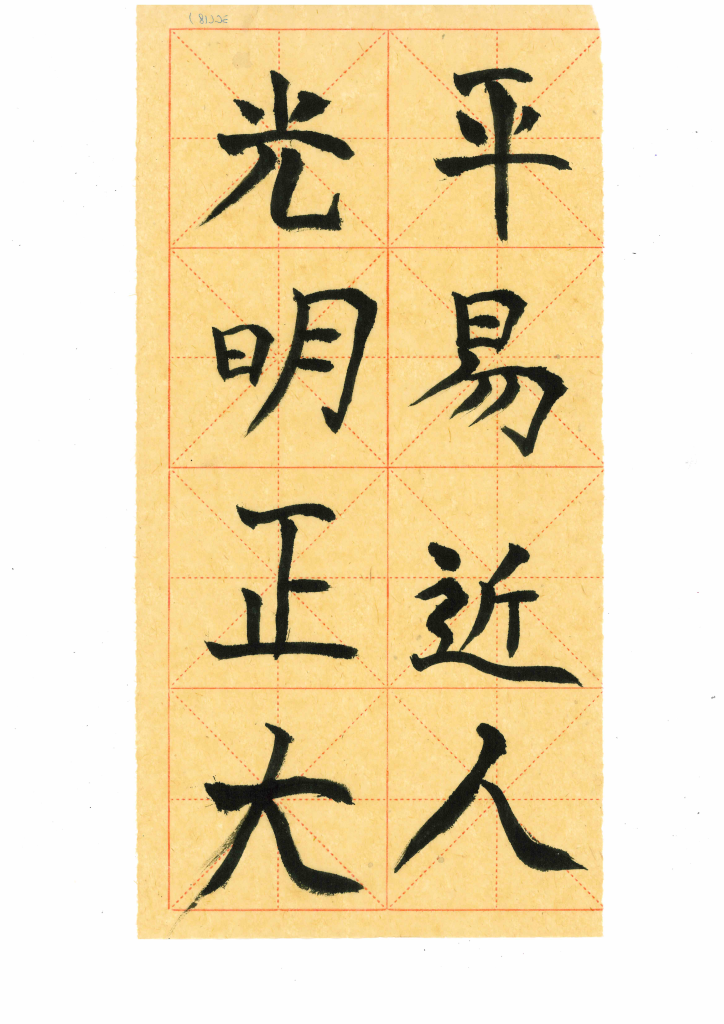 平易近人
光明正大